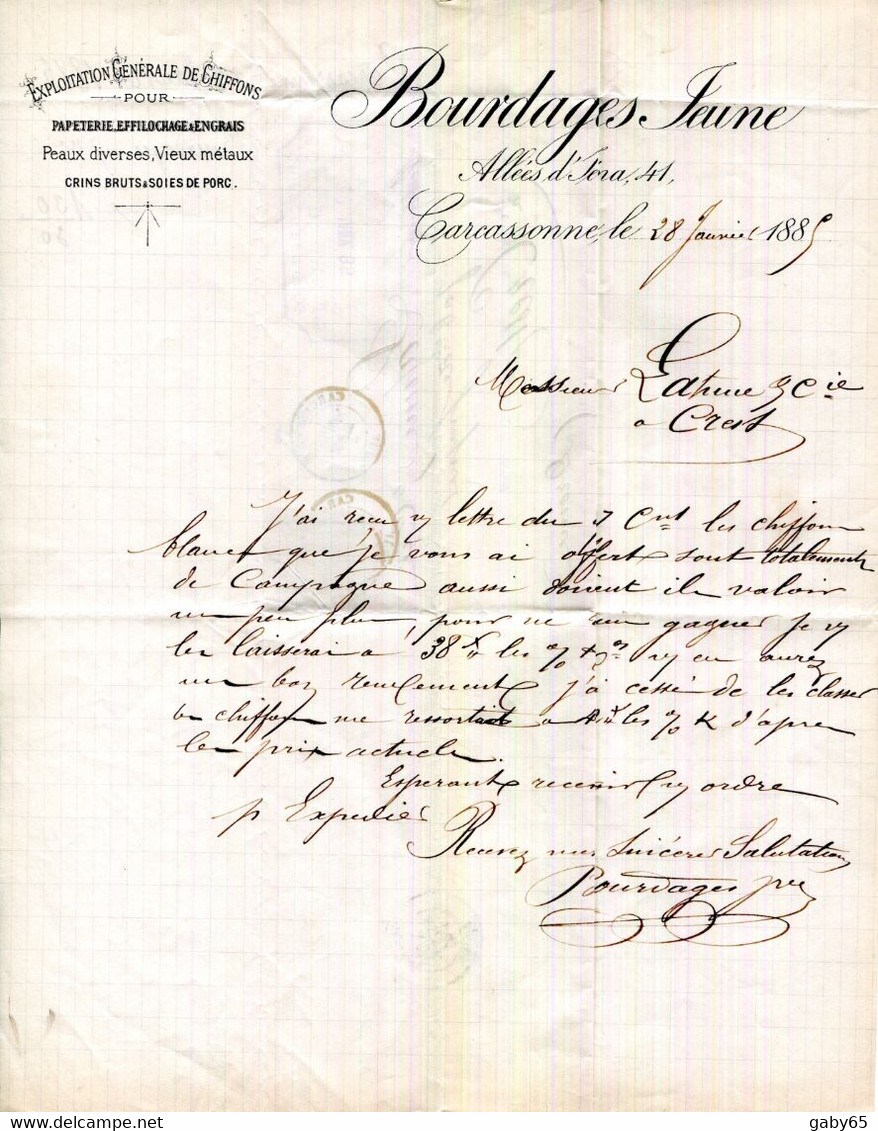 EXPLOITATION GÉNÉRALE DE CHIFFONS
POUR
PAPETERIE, EFFILOCHAGE & ENGRAIS
Peaux diverses, Vieux métaux
CRINS BRUTS & SOIES DE PORC.
Bourdages Jeune
Allées d'Iéna, 41,
Carcassonne, le 28 Janvier 1885
Messieurs Lahme & Cie
a Crest
J'ai reçu vy lettre du 7 Cnt les chiffons
blancs que je vous ai offert sont totalements
de Campagne aussi doivent ils valoir
un peu plus, pour ne rien gagner je vy
les laisserai a 38 les % vy en aurez
un bon rendement, j'ai cessé de les classer
chiffons me ressortant a les % K d'apres
les prix actuels.
Esperant recevoir vy ordre
p Expedier
Recevez mes Sincères Salutations
Bourdages jne
gaby65